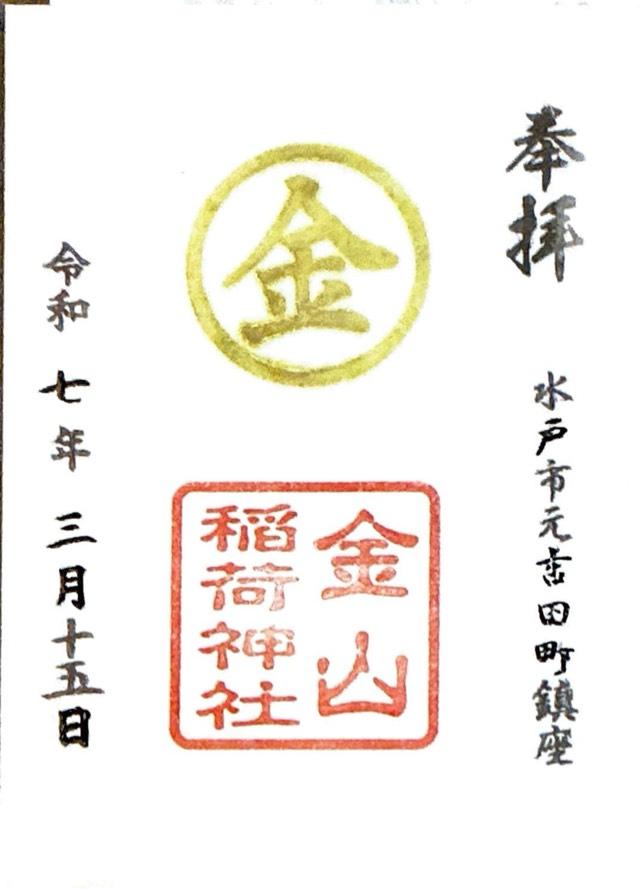 奉拝
水戸市元吉田町鎮座
金
金山
稲荷神社
令和七年三月十五日